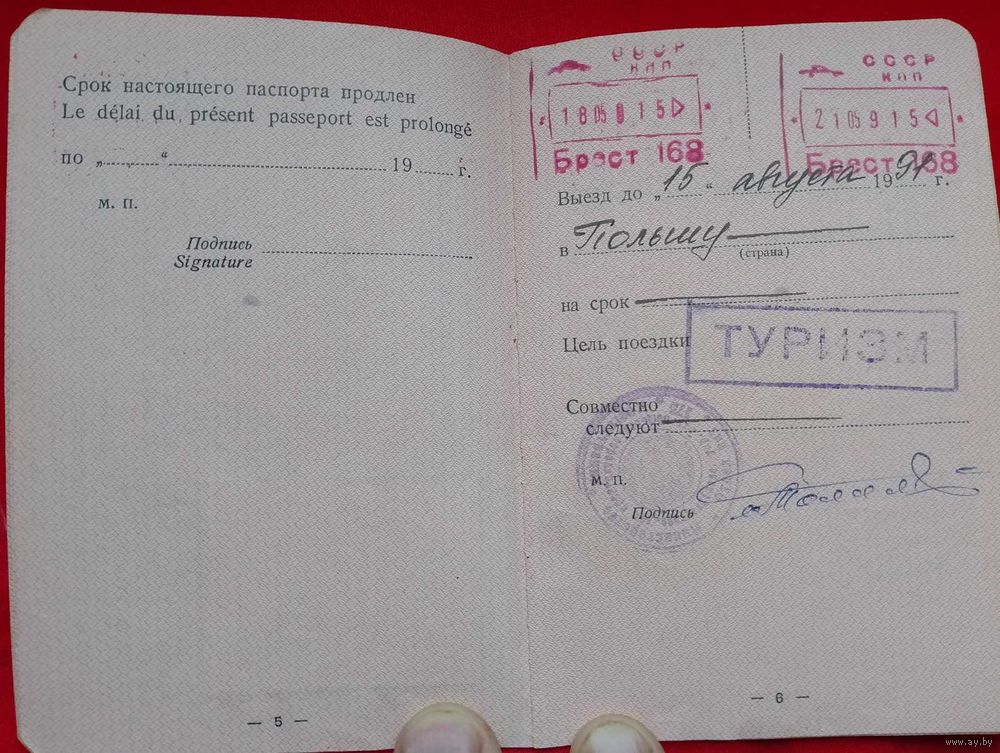 Срок настоящего паспорта продлен
Le délai du présent passeport est prolongé
по „ “ 19 г.
м. п.
Подпись
Signature
— 5 —
СССР
КПП
18 05 15
Брест 168
СССР
КПП
21 05 9 15
Брест 168
Выезд до „15“ августа 1991 г.
в Польшу
(страна)
на срок
Цель поездки ТУРИЗМ
Совместно
следуют
м. п.
Подпись
— 6 —
www.ay.by